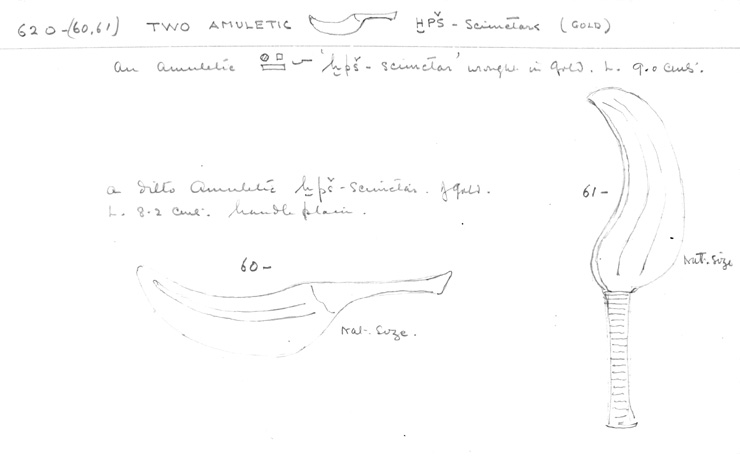 620-(60,61) TWO AMULETIC ḪPŠ - Scimetars (GOLD)
An amuletic 'ḫpš - scimetar' wrought in gold. L. 9.0 cms.
61-
a ditto amuletic ḫpš-scimetar. of gold.
L. 8.2 cms. handle plain.
Nat. Size
60-
Nat. Size.